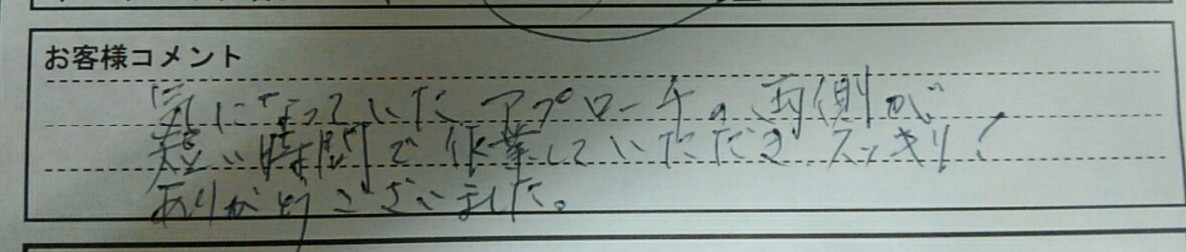 お客様コメント
気になっていたアプローチの両側が
短い時間で作業していただきスッキリ！
ありがとうございました。